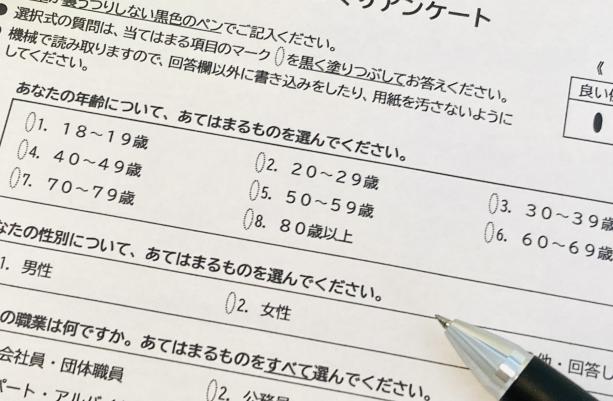 アンケート
裏うつりしない黒色のペンでご記入ください。
● 選択式の質問は、当てはまる項目のマーク を黒く塗りつぶしてお答えください。
機械で読み取りますので、回答欄以外に書き込みをしたり、用紙を汚さないように
してください。
《
良い
あなたの年齢について、あてはまるものを選んでください。
1. 18～19歳 2. 20～29歳 3. 30～39歳
4. 40～49歳 5. 50～59歳 6. 60～69歳
7. 70～79歳 8. 80歳以上
なたの性別について、あてはまるものを選んでください。
1. 男性 2. 女性 他・回答し
の職業は何ですか。あてはまるものをすべて選んでください。
会社員・団体職員 2. 公務員
パート・アルバイ